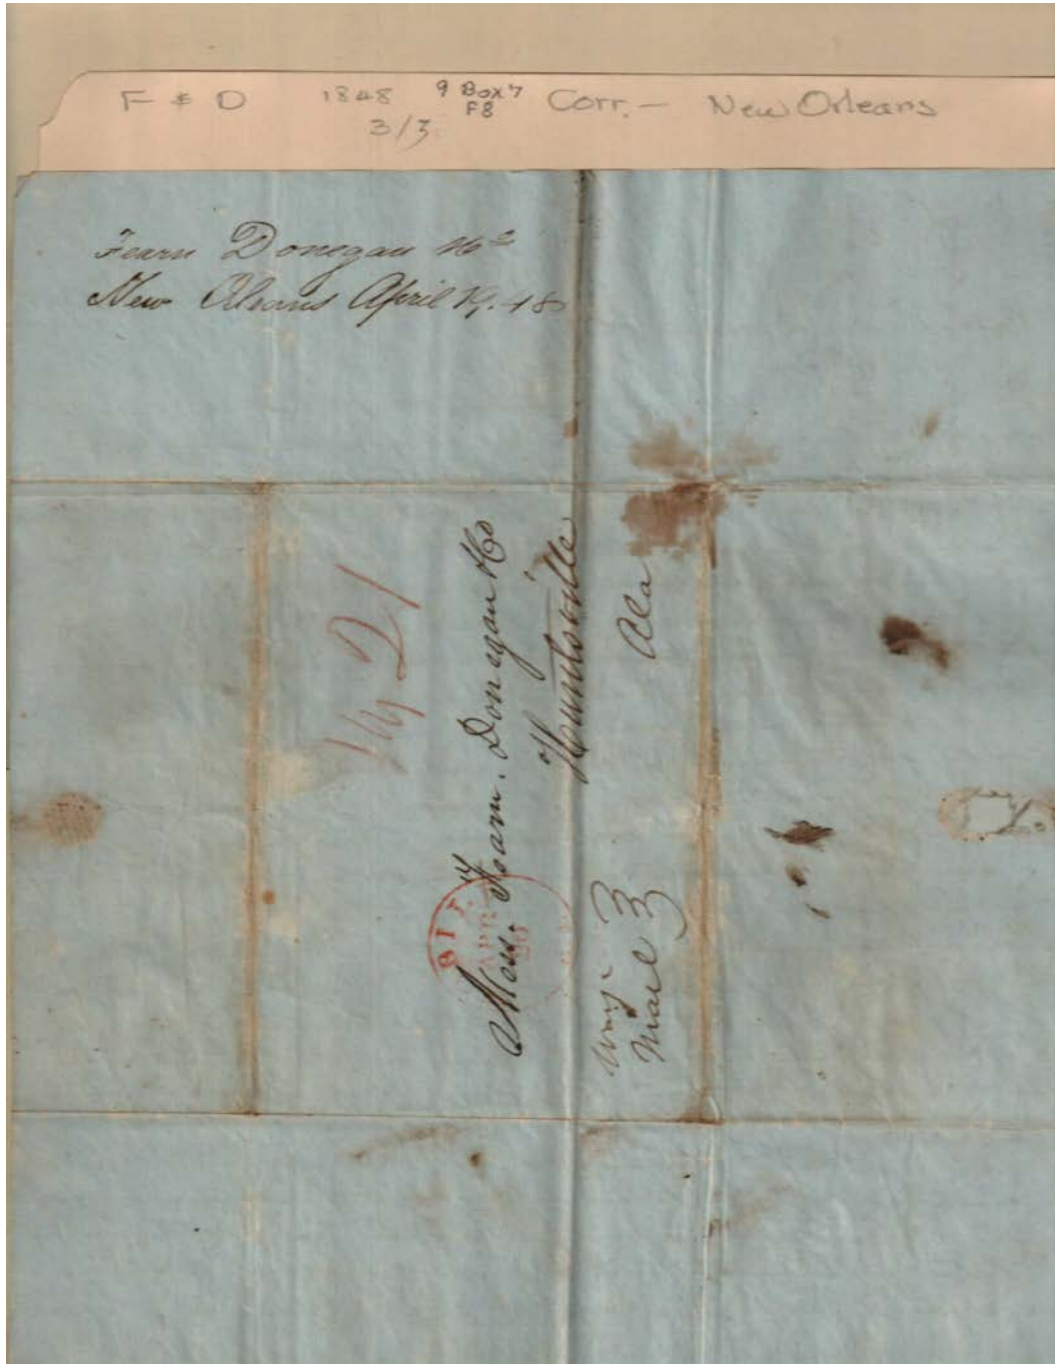 F & D 1848 9 Box 7 Corr. — New Orleans
F8
3/3
Fearn Donegan &Co
New Orleans April 19. 48
Mess. Fearn. Donegan &Co
Huntsville
Ala
Mail 3
APR